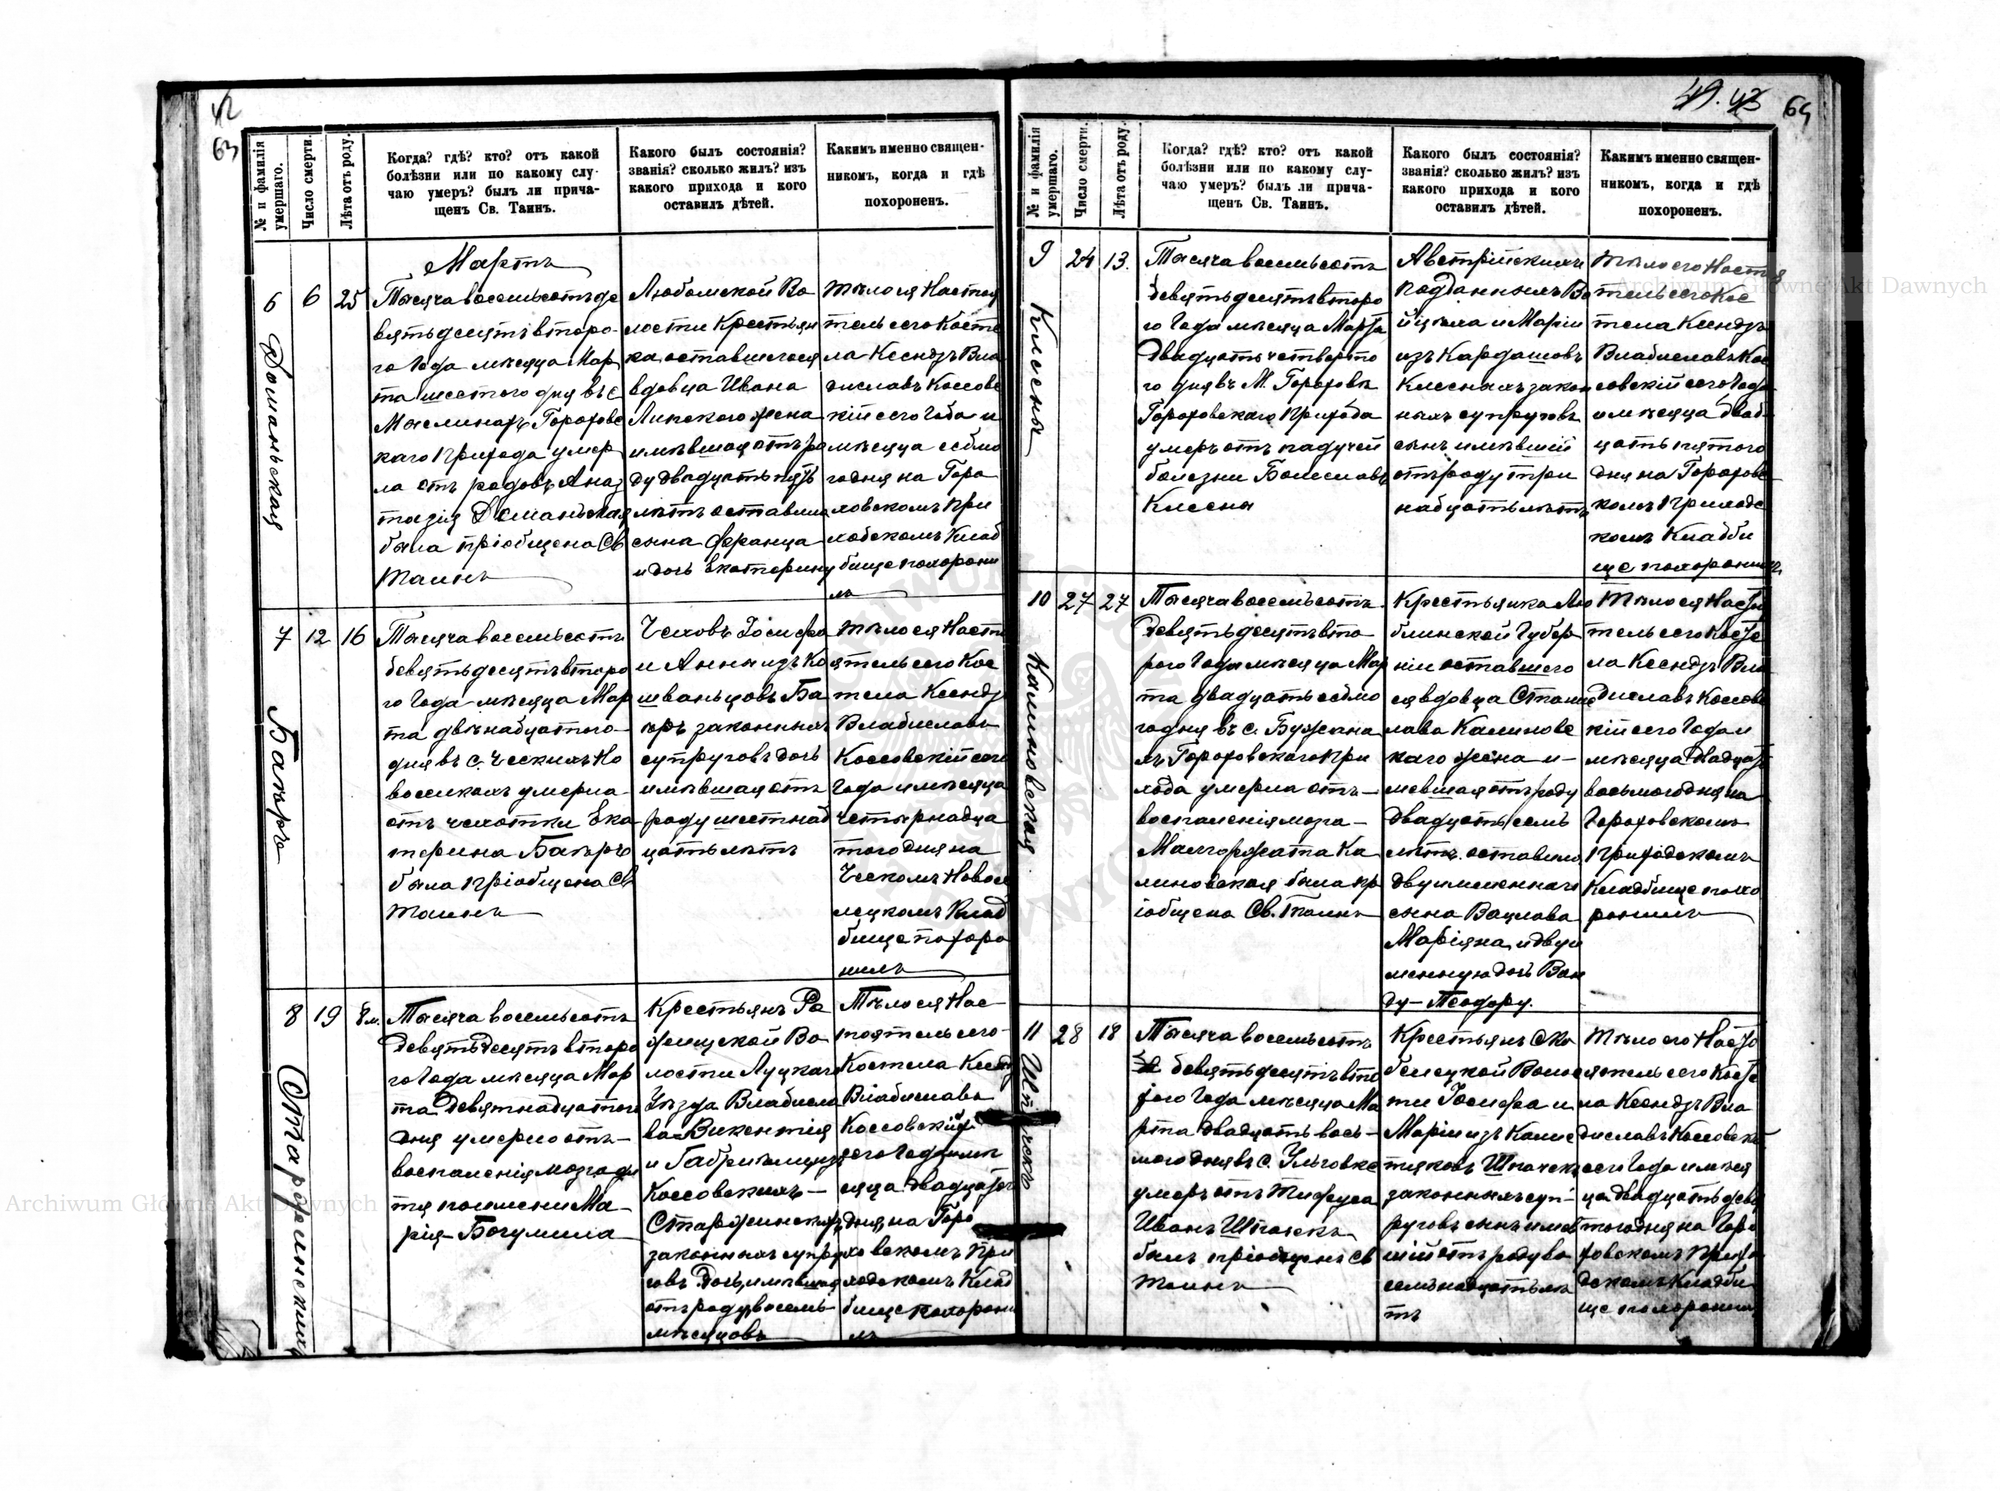 42
63
№ и фамилія умершаго.
Число смерти.
Лѣта отъ роду.
Когда? гдѣ? кто? отъ какой
болѣзни или по какому слу-
чаю умеръ? былъ ли прича-
щенъ Св. Таинъ.
Какого былъ состоянія?
званія? сколько жилъ? изъ
какого прихода и кого
оставилъ дѣтей.
Какимъ именно священ-
никомъ, когда и гдѣ
похороненъ.
Мартъ
6
Доманьская
6
25
Тысяча восемьсотъ де
вятьдесятъ второ-
го Года мѣсяца Мар
та шестого дня въ с
Маслинахъ Гороховс
каго Прихода умер
ла отъ родовъ Анас
тазія Доманьская
была пріобщена Св
Таинъ
Любомской Во
лости Крестьян
ка оставшегося
вдовца Ивана
Линского жена
имѣвшая отъ ро
ду двадцать пять
лѣтъ оставила
сына Франца
и дочь Екатерину
Тѣло ея Настоя
тель сего Косте
ла Ксендзъ Вла
диславъ Коссовс
кій сего Года и
мѣсяца седмо
го дня на Горо
ховскомъ При
ходскомъ Клад
бище похорони
лъ
7
Бакѣръ
12
16
Тысяча восемьсотъ
девятьдесятъ второ
го Года мѣсяца Мар
та двѣнадцатого
дня въ с. Ческихъ Но
воселкахъ умерла
отъ чахотки Ека
терина Бакѣръ
была пріобщена Св
Таинъ
Чеховъ Іосифа
и Анны изъ Ко
шваньцовъ Ба
кѣръ законныхъ
супруговъ дочь
имѣвшая отъ
роду шестнад
цать лѣтъ
Тѣло ея Насто
ятель сего Кос
тела Ксендзъ
Владиславъ
Коссовскій сего
Года и мѣсяца
четырнадца
того дня на
Ческомъ Новосе
лецкомъ Клад
бище похоро
нилъ
8
Старжинскихъ
19
8 м.
Тысяча восемьсотъ
девятьдесятъ второ
го Года мѣсяца Мар
та девятнадцатого
дня умерло отъ
воспаленія мозга ди
тя по имени Ма-
рія-Богумила
Крестьянъ Ро
жищской Во
лости Луцкаго
Уѣзда Владисла
ва-Викентія
и Габріели изъ
Коссовскихъ -
Старжинскихъ
законныхъ супру
говъ дочь имѣвшая
отъ роду восемь
мѣсяцовъ
Тѣло ея Нас
тоятель сего
Костела Ксендзъ
Владиславъ
Коссовскій
сего Года и мѣ
сяца двадцатого
дня на Горо
ховскомъ При
ходскомъ Клад
бище похорони
лъ
49. 43
64
№ и фамилія умершаго.
Число смерти.
Лѣта отъ роду.
Когда? гдѣ? кто? отъ какой
болѣзни или по какому слу-
чаю умеръ? былъ ли прича-
щенъ Св. Таинъ.
Какого былъ состоянія?
званія? сколько жилъ? изъ
какого прихода и кого
оставилъ дѣтей.
Какимъ именно священ-
никомъ, когда и гдѣ
похороненъ.
9
Клесны
24
13.
Тысяча восемьсотъ
девятьдесятъ второ
го Года мѣсяца Марта
двадцать четверто
го дня въ М. Гороховѣ
Гороховскаго Прихода
умеръ отъ падучей
болезни Болеславъ
Клесна
Австрійскихъ
подданныхъ Во
йцѣха и Маріи
изъ Кардашовъ
Клесныхъ закон
ныхъ супруговъ
сынъ имѣвшій
отъ роду три
надцать лѣтъ
Тѣло его Настоя
тель сего Кос
тела Ксендзъ
Владиславъ Кос
совскій сего Года
и мѣсяца двад
цать пятого
дня на Гороховс
комъ Приходс
комъ Кладби
ще похоронилъ
10
Калиновская
27
27
Тысяча восемьсотъ
девятьдесятъ вто
рого Года мѣсяца Мар
та двадцать седмо
го дня въ с. Бужана
хъ Гороховскаго При
хода умерла отъ
воспаленія мозга
Малгоржата Ка
линовская была пр
іобщена Св. Таинъ
Крестьянка Лю
блинской Губер
ніи оставшего
ся вдовца Станис
лава Калиновс
каго жена и-
мевшая отъ роду
двадцать семь
лѣтъ. оставила
двуименнаго
сына Вацлава
Маріяна, и двуи
менную дочь Ван
ду-Теодору.
Тѣло ея Настоя
тель сего Косте
ла Ксендзъ Вла
диславъ Коссовс
кій сего Года и
мѣсяца двадцать
восьмого дня на
Гороховскомъ
Приходскомъ
Кладбище похо
ронилъ
11
Шпачекъ
28
18
Тысяча восемьсотъ
девятьдесятъ вто
рого Года мѣсяца Ма
рта двадцать вось-
мого дня въ с. Ульговкѣ
умеръ отъ Тифуса
Иванъ Шпачекъ
былъ пріобщенъ Св
Таинъ
Крестьянъ Ско
белецкой Волос
ти Іосифа и
Маріи изъ Калис
тяковъ Шпачекъ
законныхъ суп-
руговъ сынъ имѣв
шій отъ роду во
семьнадцать лѣ
тъ
Тѣло его Настоя
ятель сего Косте
ла Ксендзъ Вла
диславъ Коссовскій
сего Года и мѣся
ца двадцать девя
того дня на Горо
ховскомъ Прихо
дскомъ Кладби
ще похоронилъ
Archiwum Główne Akt Dawnych
Archiwum Główne Akt Dawnych